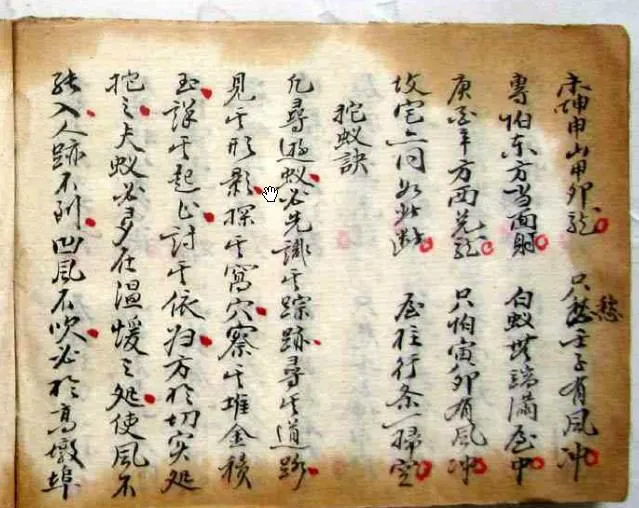 未坤申山甲卯龍 只愁壬子有風冲
愁
專怕东方当面射 白蚁無端滿屋中
庚酉辛方西兑龍 只怕寅卯有風冲
坟宅六问如此断 屋柱行条一掃空
挖蚁訣
凡尋遊蚁必先識其踪跡尋其道路
見其形影探其窩穴察其堆金積
玉詳其起止討其依归方於切实处
挖之夫蚁必多在温煖之处使風不
能入人跡不到凹風不吹必於高墩埠